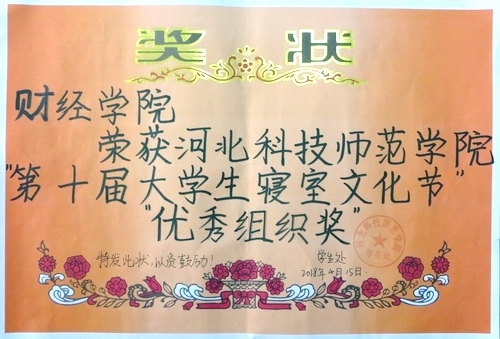 奖 状
财经学院
荣获河北科技师范学院
"第十届大学生寝室文化节"
"优秀组织奖"
特发此状,以资鼓励!
学生处
2018年4月15日